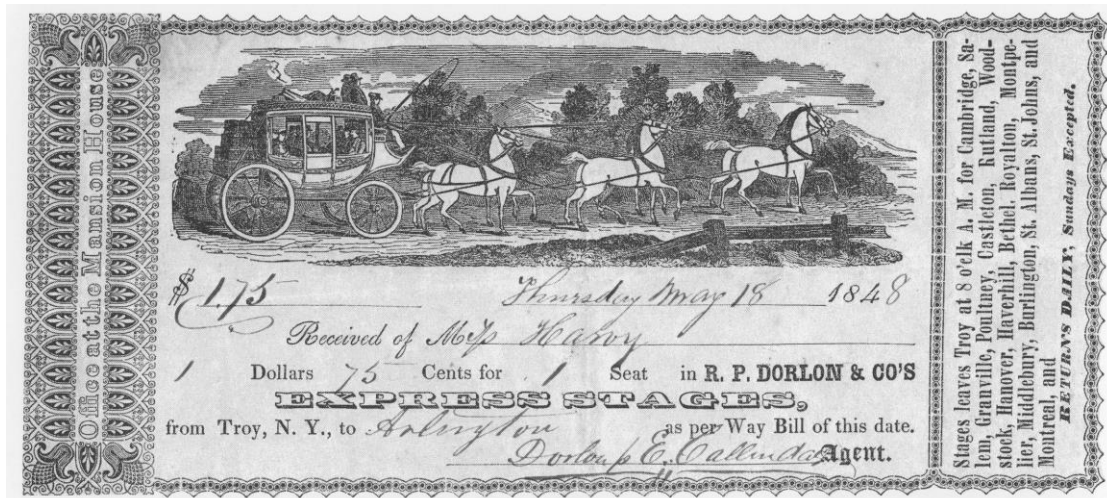 Office at the Mansion House
$ 1.75 Thursday May 18 1848
Received of Miss Harvy
1 Dollars 75 Cents for 1 Seat in R. P. DORLON & CO'S
EXPRESS STAGES,
from Troy, N. Y., to Arlington as per Way Bill of this date.
Dorlon p E. Agent.
Stages leaves Troy at 8 o'clk A. M. for Cambridge, Sa-
lem, Granville, Poultney, Castleton, Rutland, Wood-
stock, Hanover, Haverhill, Bethel, Royalton, Montpe-
lier, Middlebury, Burlington, St. Albans, St. Johns, and
Montreal, and
RETURNS DAILY, Sundays Excepted.